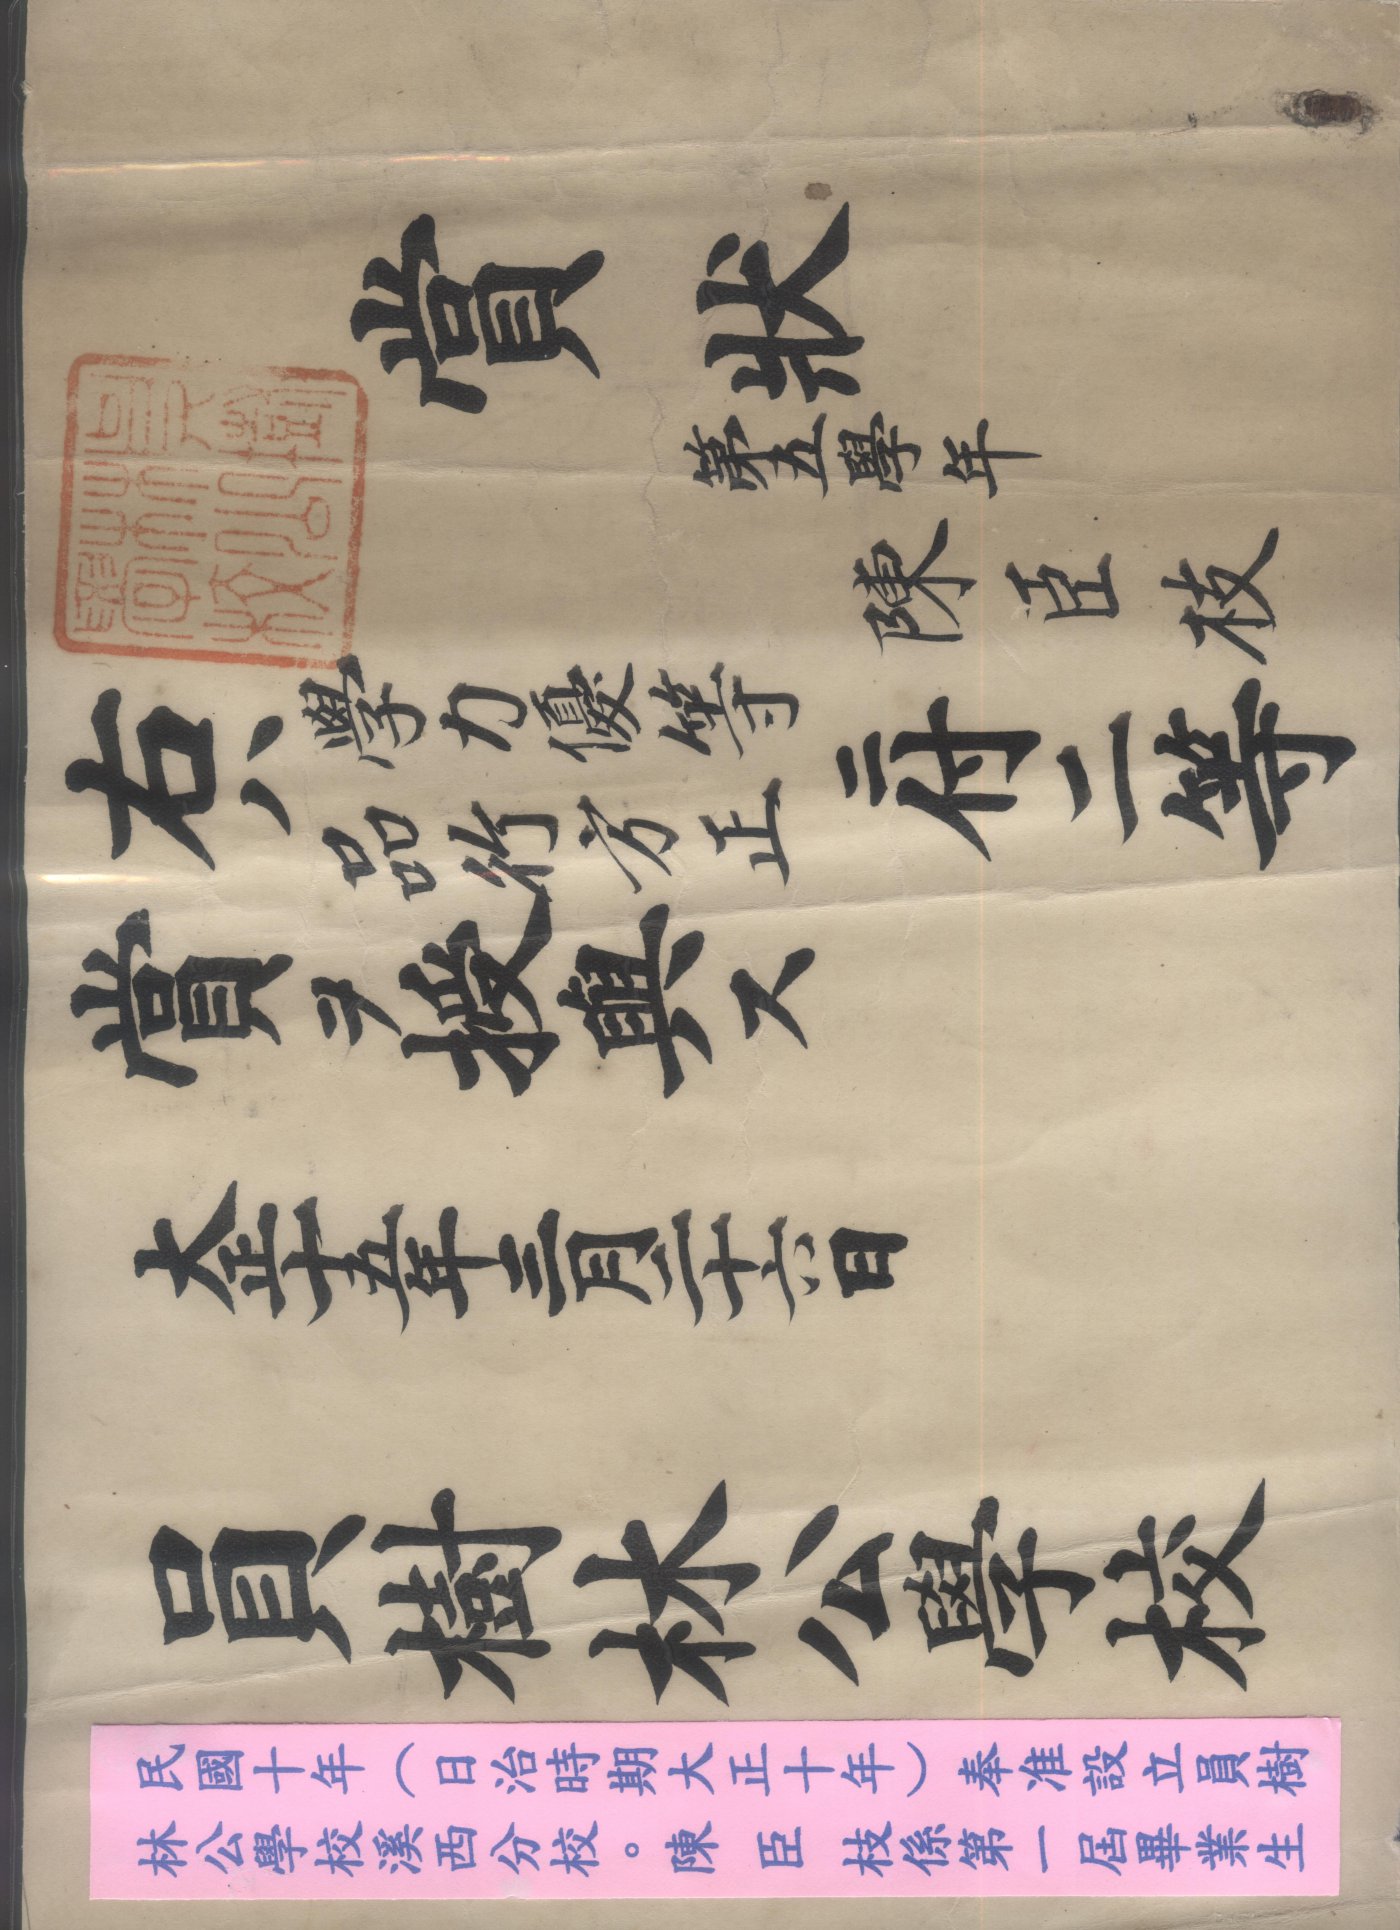 賞狀
第五學年
陳臣枝
右ハ學力優等
品行方正
ニ付二等
賞ヲ授與ス
大正十五年三月二十六日
員樹林公學校
民國十年（日治時期大正十年）奉准設立員樹
林公學校溪西分校。陳臣枝係第一屆畢業生